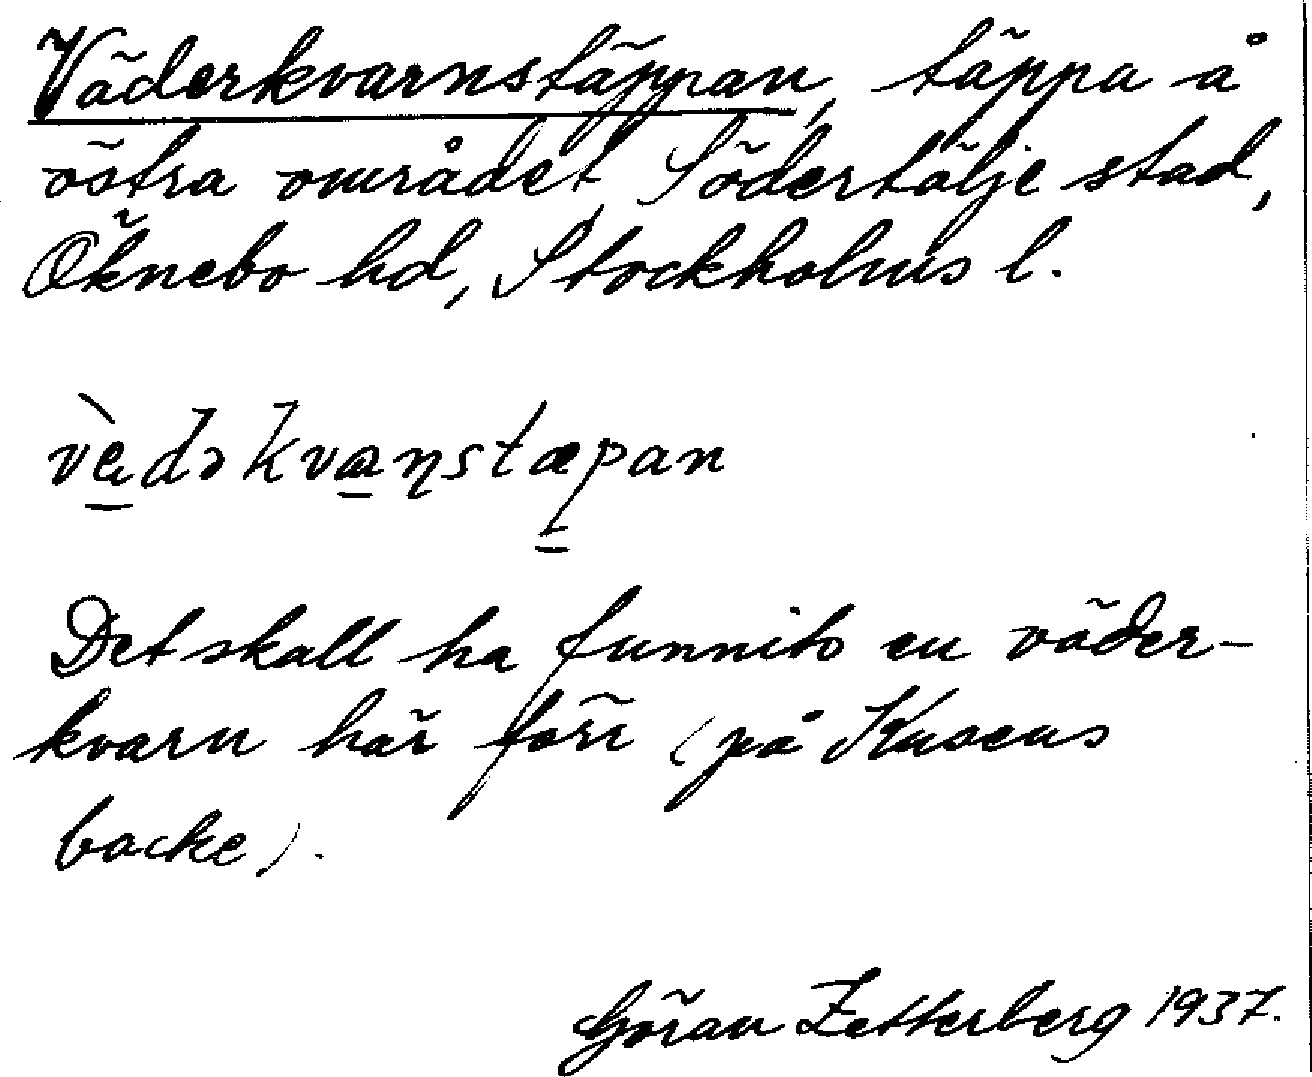 Väderkvarnstäppan, täppa å
östra området, Södertälje stad,
Öknebo hd, Stockholms l.
vè̱dəkva̱ŋstæpan
Det skall ha funnits en väder-
kvarn här förr (på Kusens
backe).
Göran Zetterberg 1937.